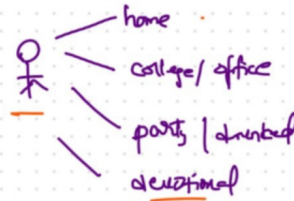 home
college/ office
party | drunked
devotional